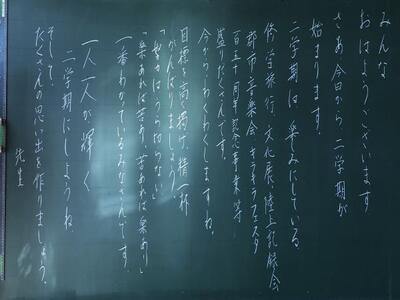 みんな
おはようございます
さあ今日から二学期が
始まります。
二学期は楽みにしている
修学旅行、文化展、陸上記録会
郡市音楽会 キラキラフェスタ
百五十周年記念事業 等
盛りだくさんです。
今からわくわくしますね。
目標を高く掲げ、精一杯
がんばりましょう。
「努力はうら切らない」
「楽あれば苦あり、苦あれば楽あり」
一番わかっているみなさんです。
一人一人が輝く
二学期にしようね。
そして、
たくさんの思い出を作りましょう。
先生